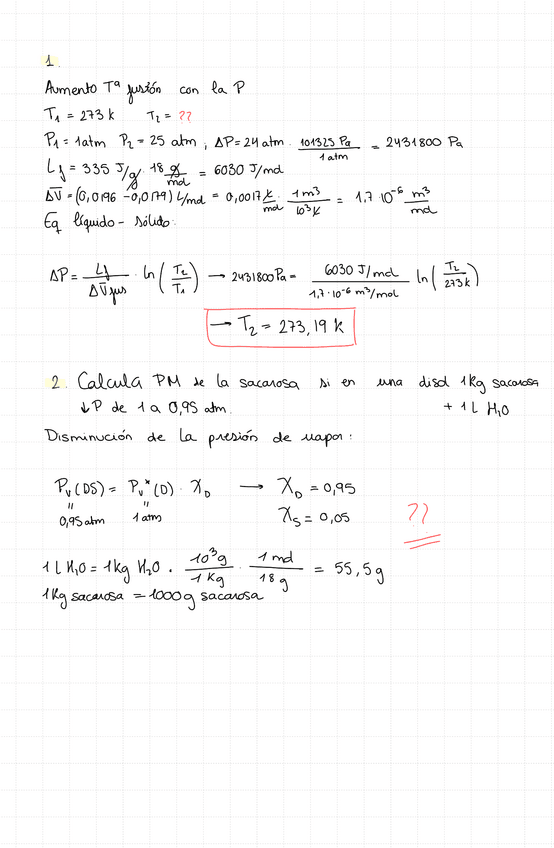 1.
Aumento Tª fusión con la P
T₁ = 273 k T₂ = ??
P₁ = 1atm P₂ = 25 atm ; ΔP = 24 atm · 101325 Pa / 1 atm = 2431800 Pa
Lf = 335 J/g · 18 g/mol = 6030 J/mol
ΔV̄ = (0,0196 - 0,0179) L/mol = 0,0017 L/mol · 1 m³ / 10³ L = 1,7·10⁻⁶ m³/mol
Eq líquido - sólido:
ΔP = Lf / ΔV̄fus · ln (T₂/T₁) → 2431800 Pa = 6030 J/mol / 1,7·10⁻⁶ m³/mol ln (T₂/273k)
→ T₂ = 273,19 k
2. Calcula PM de la sacarosa si en una disol 1Kg sacarosa
↓P de 1 a 0,95 atm. + 1 L H₂O
Disminución de la presión de vapor:
Pv (DS) = Pv* (D) · XD → XD = 0,95
" "
0,95 atm 1 atm XS = 0,05 ??
1 L H₂O = 1 kg H₂O · 10³g / 1 kg · 1 mol / 18 g = 55,5 g
1Kg sacarosa = 1000 g sacarosa